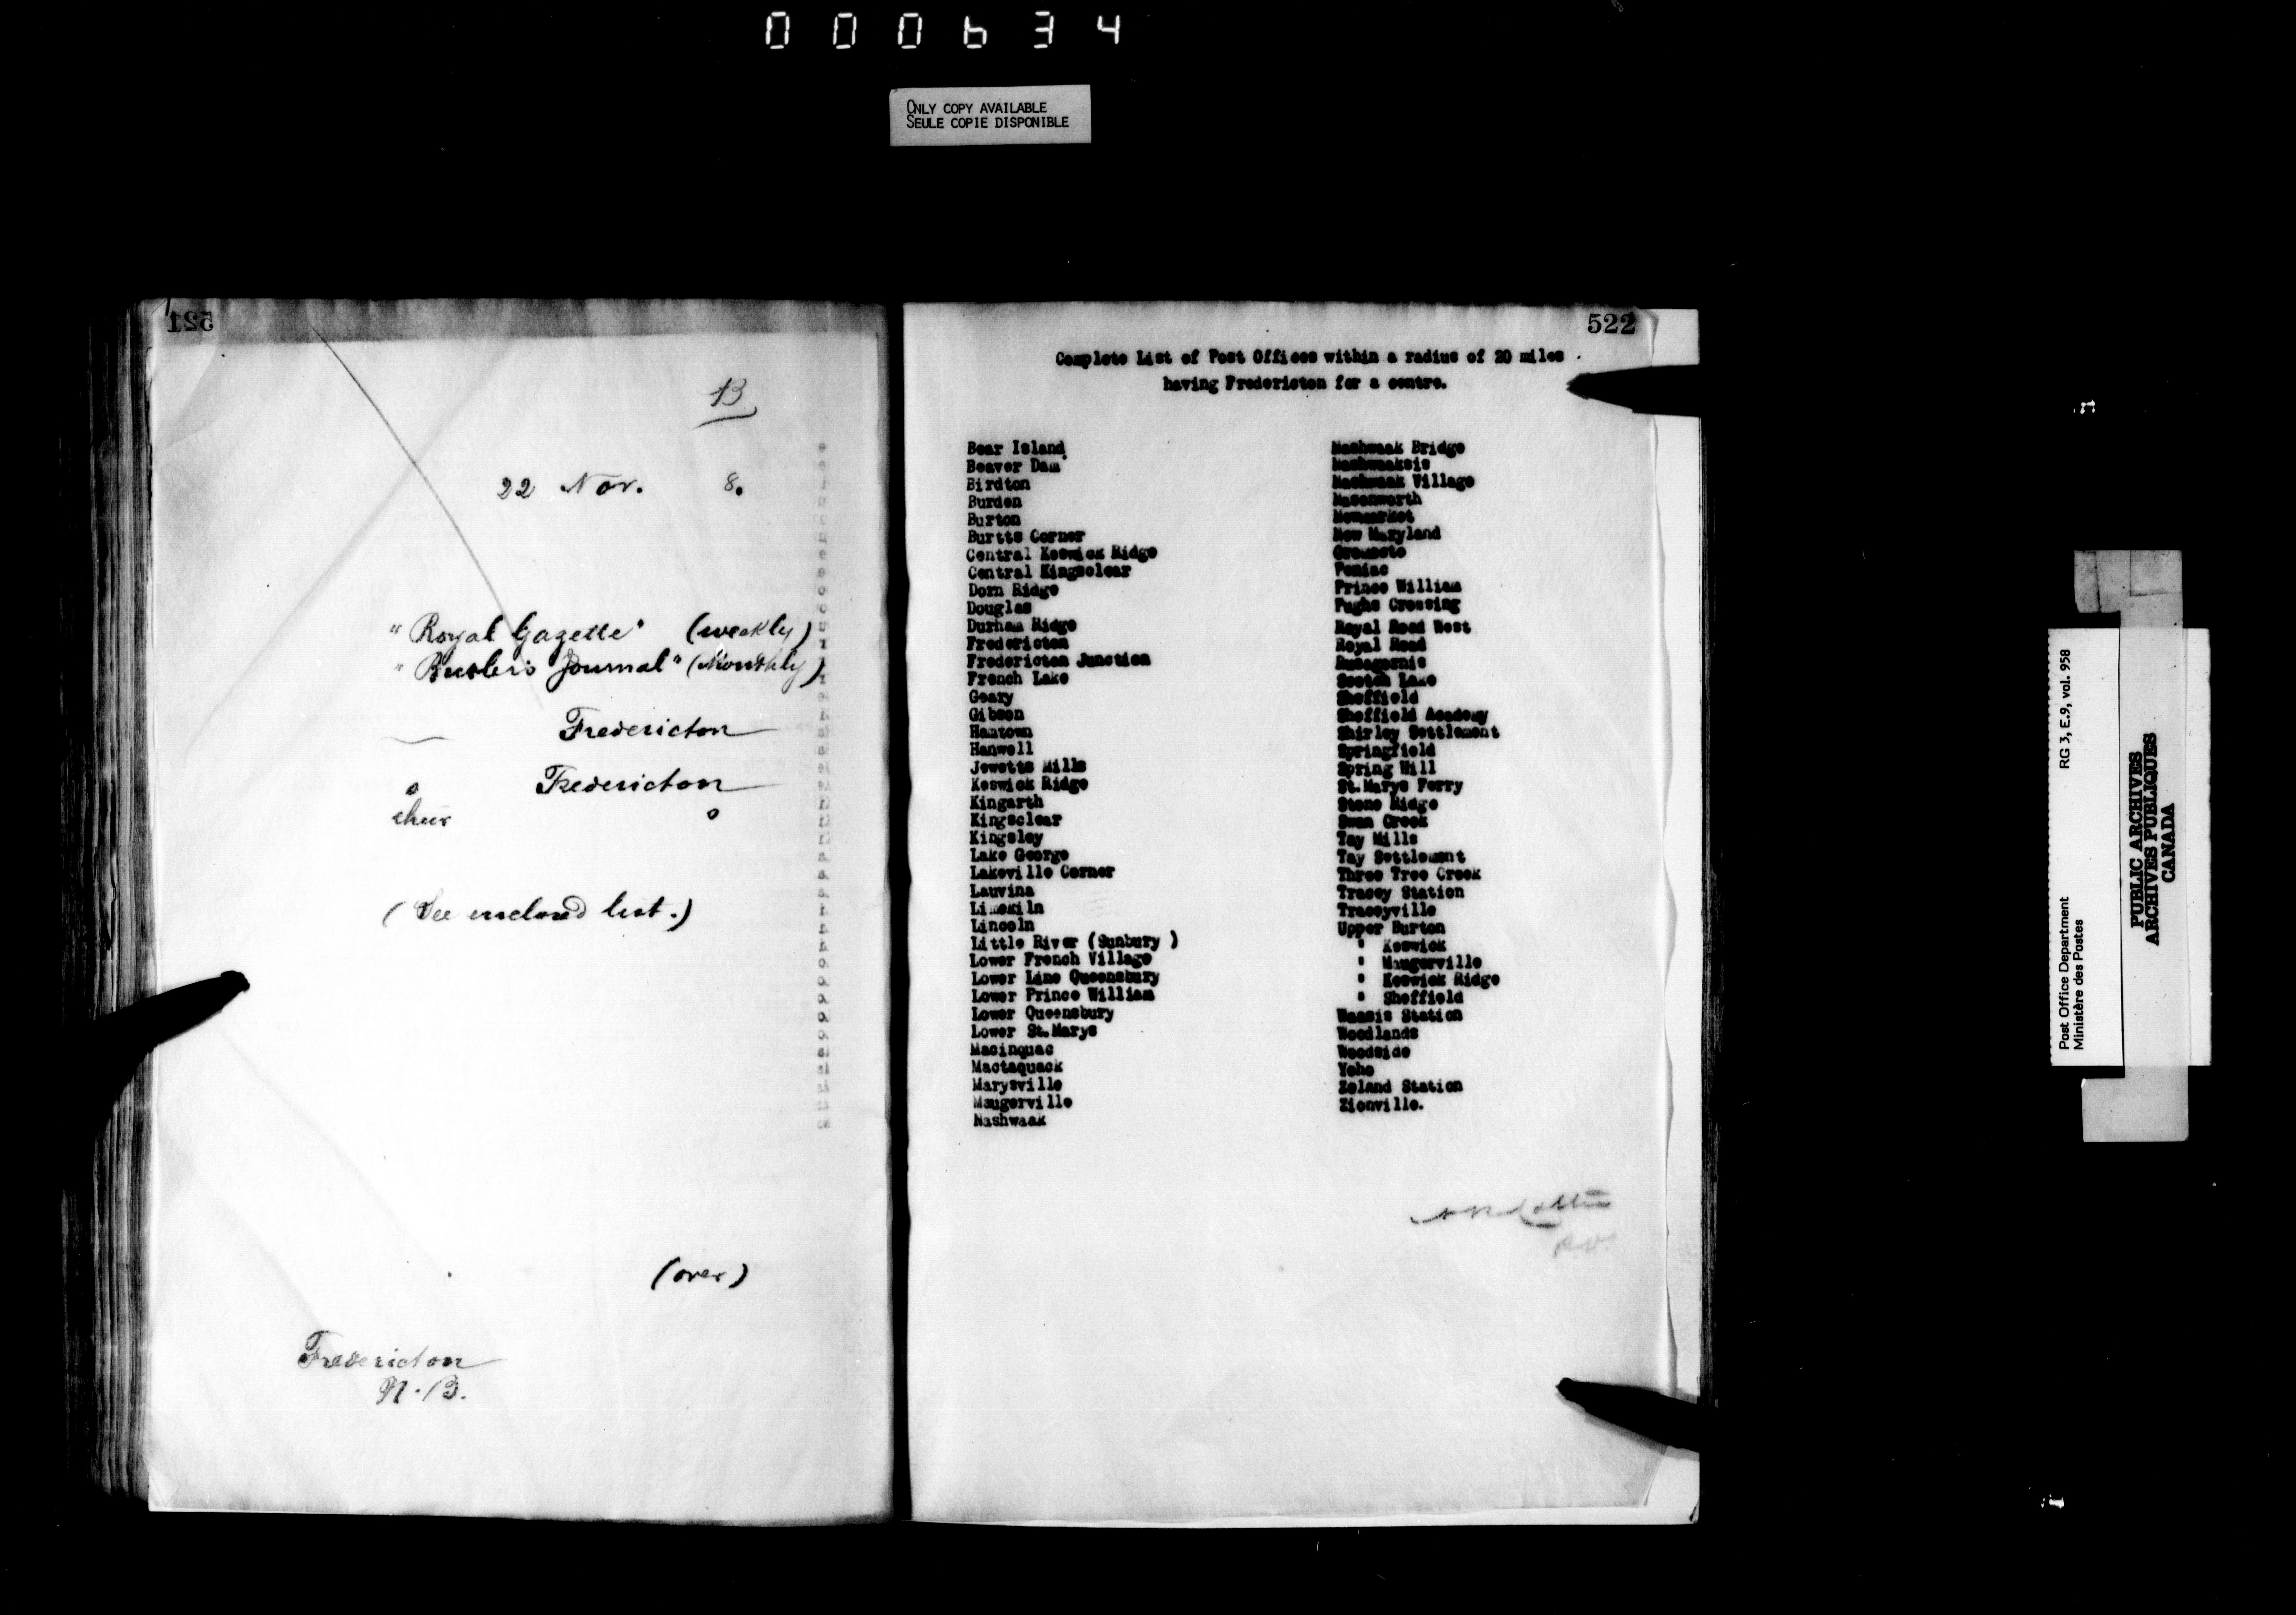 000634
ONLY COPY AVAILABLE
SEULE COPIE DISPONIBLE
521
B
22 Nov. 8.
"Royal Gazette" (weekly)
"Butler's Journal" (Monthly)
Fredericton
Fredericton
their
(See enclosed list.)
(over)
Fredericton
N.B.
522
Complete List of Post Offices within a radius of 20 miles
having Fredericton for a centre.
Bear Island
Beaver Dam
Birdton
Burden
Burton
Burtts Corner
Central Keswick Ridge
Central Kingsclear
Dorn Ridge
Douglas
Durham Ridge
Fredericton
Fredericton Junction
French Lake
Geary
Gibson
Hamtown
Hanwell
Jewetts Mills
Keswick Ridge
Kingarth
Kingsclear
Kingsley
Lake George
Lakeville Corner
Lauvina
Limekiln
Lincoln
Little River (Sunbury )
Lower French Village
Lower Line Queensbury
Lower Prince William
Lower Queensbury
Lower St.Marys
Macinquac
Mactaquack
Marysville
Maugerville
Nashwaak
Nashwaak Bridge
Nashwaaksis
Nashwaak Village
Nasonworth
Newmarket
New Maryland
Oromocto
Peniac
Prince William
Pughs Crossing
Royal Road West
Royal Road
Rusagornis
Scotch Lake
Sheffield
Sheffield Academy
Shirley Settlement
Springfield
Spring Hill
St.Marys Ferry
Stone Ridge
Swan Creek
Tay Mills
Tay Settlement
Three Tree Creek
Tracey Station
Traceyville
Upper Burton
" Keswick
" Maugerville
" Keswick Ridge
" Sheffield
Waasis Station
Woodlands
Woodside
Yoho
Zeland Station
Zionville.
Post Office Department RG 3, E.9, vol. 958
Ministère des Postes
PUBLIC ARCHIVES
ARCHIVES PUBLIQUES
CANADA